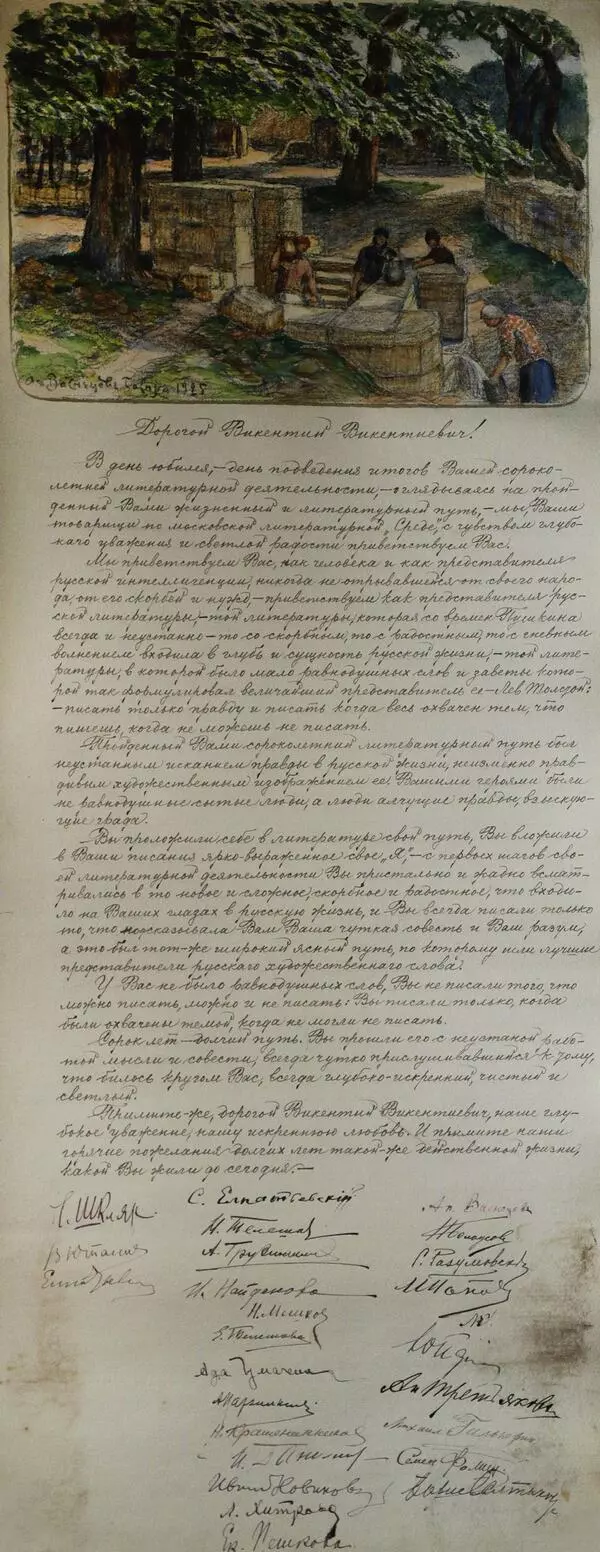 Ап. Васнецовъ 1925
Дорогой Викентий Викентиевич!
В день юбилея,—день подведения итогов Вашей сороко-
летней литературной деятельности,—оглядываясь на прой-
денный Вами жизненный и литературный путь,—мы, Ваши
товарищи по московской литературной „Среде“, с чувством глубо-
кого уважения и светлой радости приветствуем Вас.
Мы приветствуем Вас, как человека и как представителя
русской интеллигенции, никогда не отрывавшейся от своего наро-
да, от его скорбей и нужд,—приветствуем как представителя рус-
ской литературы,—той литературы, которая со времен Пушкина
всегда и неустанно—то со скорбным, то с радостным, то с гневным
волнением входила в глубь и сущность русской жизни,—той лите-
ратуры, в которой было мало равнодушных слов и заветы кото-
рой так формулировал величайший представитель ее—Лев Толстой:
—писать только правду и писать когда весь охвачен тем, что
пишешь, когда не можешь не писать.
Пройденный Вами сороколетний литературный путь был
неустанным исканием правды в русской жизни, неизменно прав-
дивым художественным изображением ее. Вашими героями были
не равнодушные сытые люди, а люди алчущие правды, взыскую-
щие града.
Вы проложили себе в литературе свой путь, Вы вложили
в Ваши писания ярко-выраженное свое „Я“,—с первых шагов сво-
ей литературной деятельности Вы пристально и жадно всмат-
ривались в то новое и сложное, скорбное и радостное, что входи-
ло на Ваших глазах в русскую жизнь, и Вы всегда писали только
то, что подсказывала Вам Ваша чуткая совесть и Ваш разум,
а это был тот-же широкий ясный путь, по которому шли лучшие
представители русскаго художественнаго слова.
У Вас не было равнодушных слов, Вы не писали того, что
можно писать, можно и не писать: Вы писали только, когда
были охвачены темой, когда не могли не писать.
Сорок лет—долгий путь. Вы прошли его с неустанной рабо-
той мысли и совести, всегда чутко прислушивавшийся к тому,
что билось кругом Вас, всегда глубоко-искренний, чистый и
светлый.
Примите-же, дорогой Викентий Викентиевич, наше глу-
бокое уважение, нашу искреннюю любовь. И примите наши
горячие пожелания долгих лет такой-же действенной жизни,
какой Вы жили до сегодня.—
Н. Шкляр.
С. Елпатьевский
Ап. Васнецов
Н. Телешов
С. Разумовский
И. Найденова
Н. Мешков
Е. Телешова
Ан Третьякова
Н. Крашенинников
Семен Фомин
Иван Новиков
Л. Хитрово
Ек. Пешкова